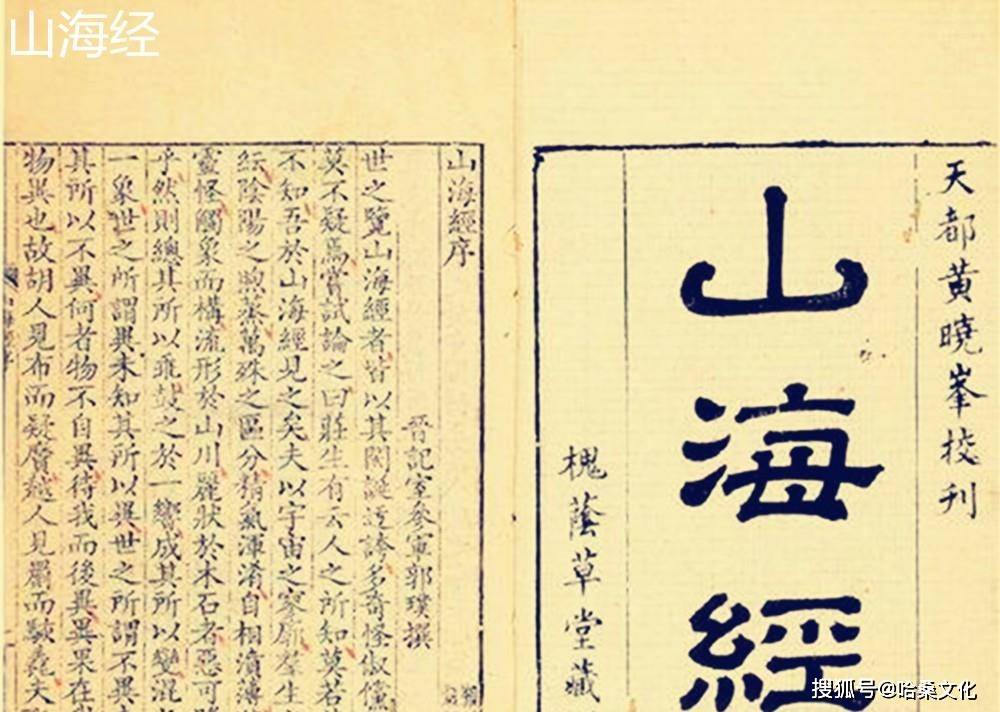 山海经
天都黄曉峯校刊
山海經
槐蔭草堂藏
山海經序
晉記室參軍郭璞撰
世之覽山海經者皆以其閎誕迂誇多奇怪俶儻
莫不疑焉嘗試論之曰莊生有云人之所知莫若
不知吾於山海經見之矣夫以宇宙之寥廓羣生
紜陰陽之煦蒸萬殊之區分精氣渾淆自相濆薄
靈怪觸象而構流形於山川麗狀於木石者惡可
乎然則總其所以乖鼓之於一響成其所以變混
一象世之所謂異未知其所以異世之所謂不異
其所以不異何者物不自異待我而後異異果在
物異也故胡人見布而疑黂越人見罽而駭毳夫
搜狐号@哈桑文化